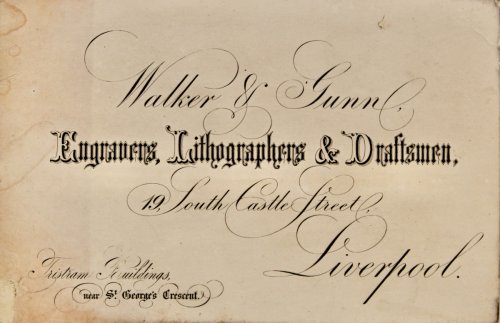 Walker & Gunn,
Engravers, Lithographers & Draftsmen,
19, South Castle Street,
Liverpool.
Tristram Buildings,
near St. George's Crescent.